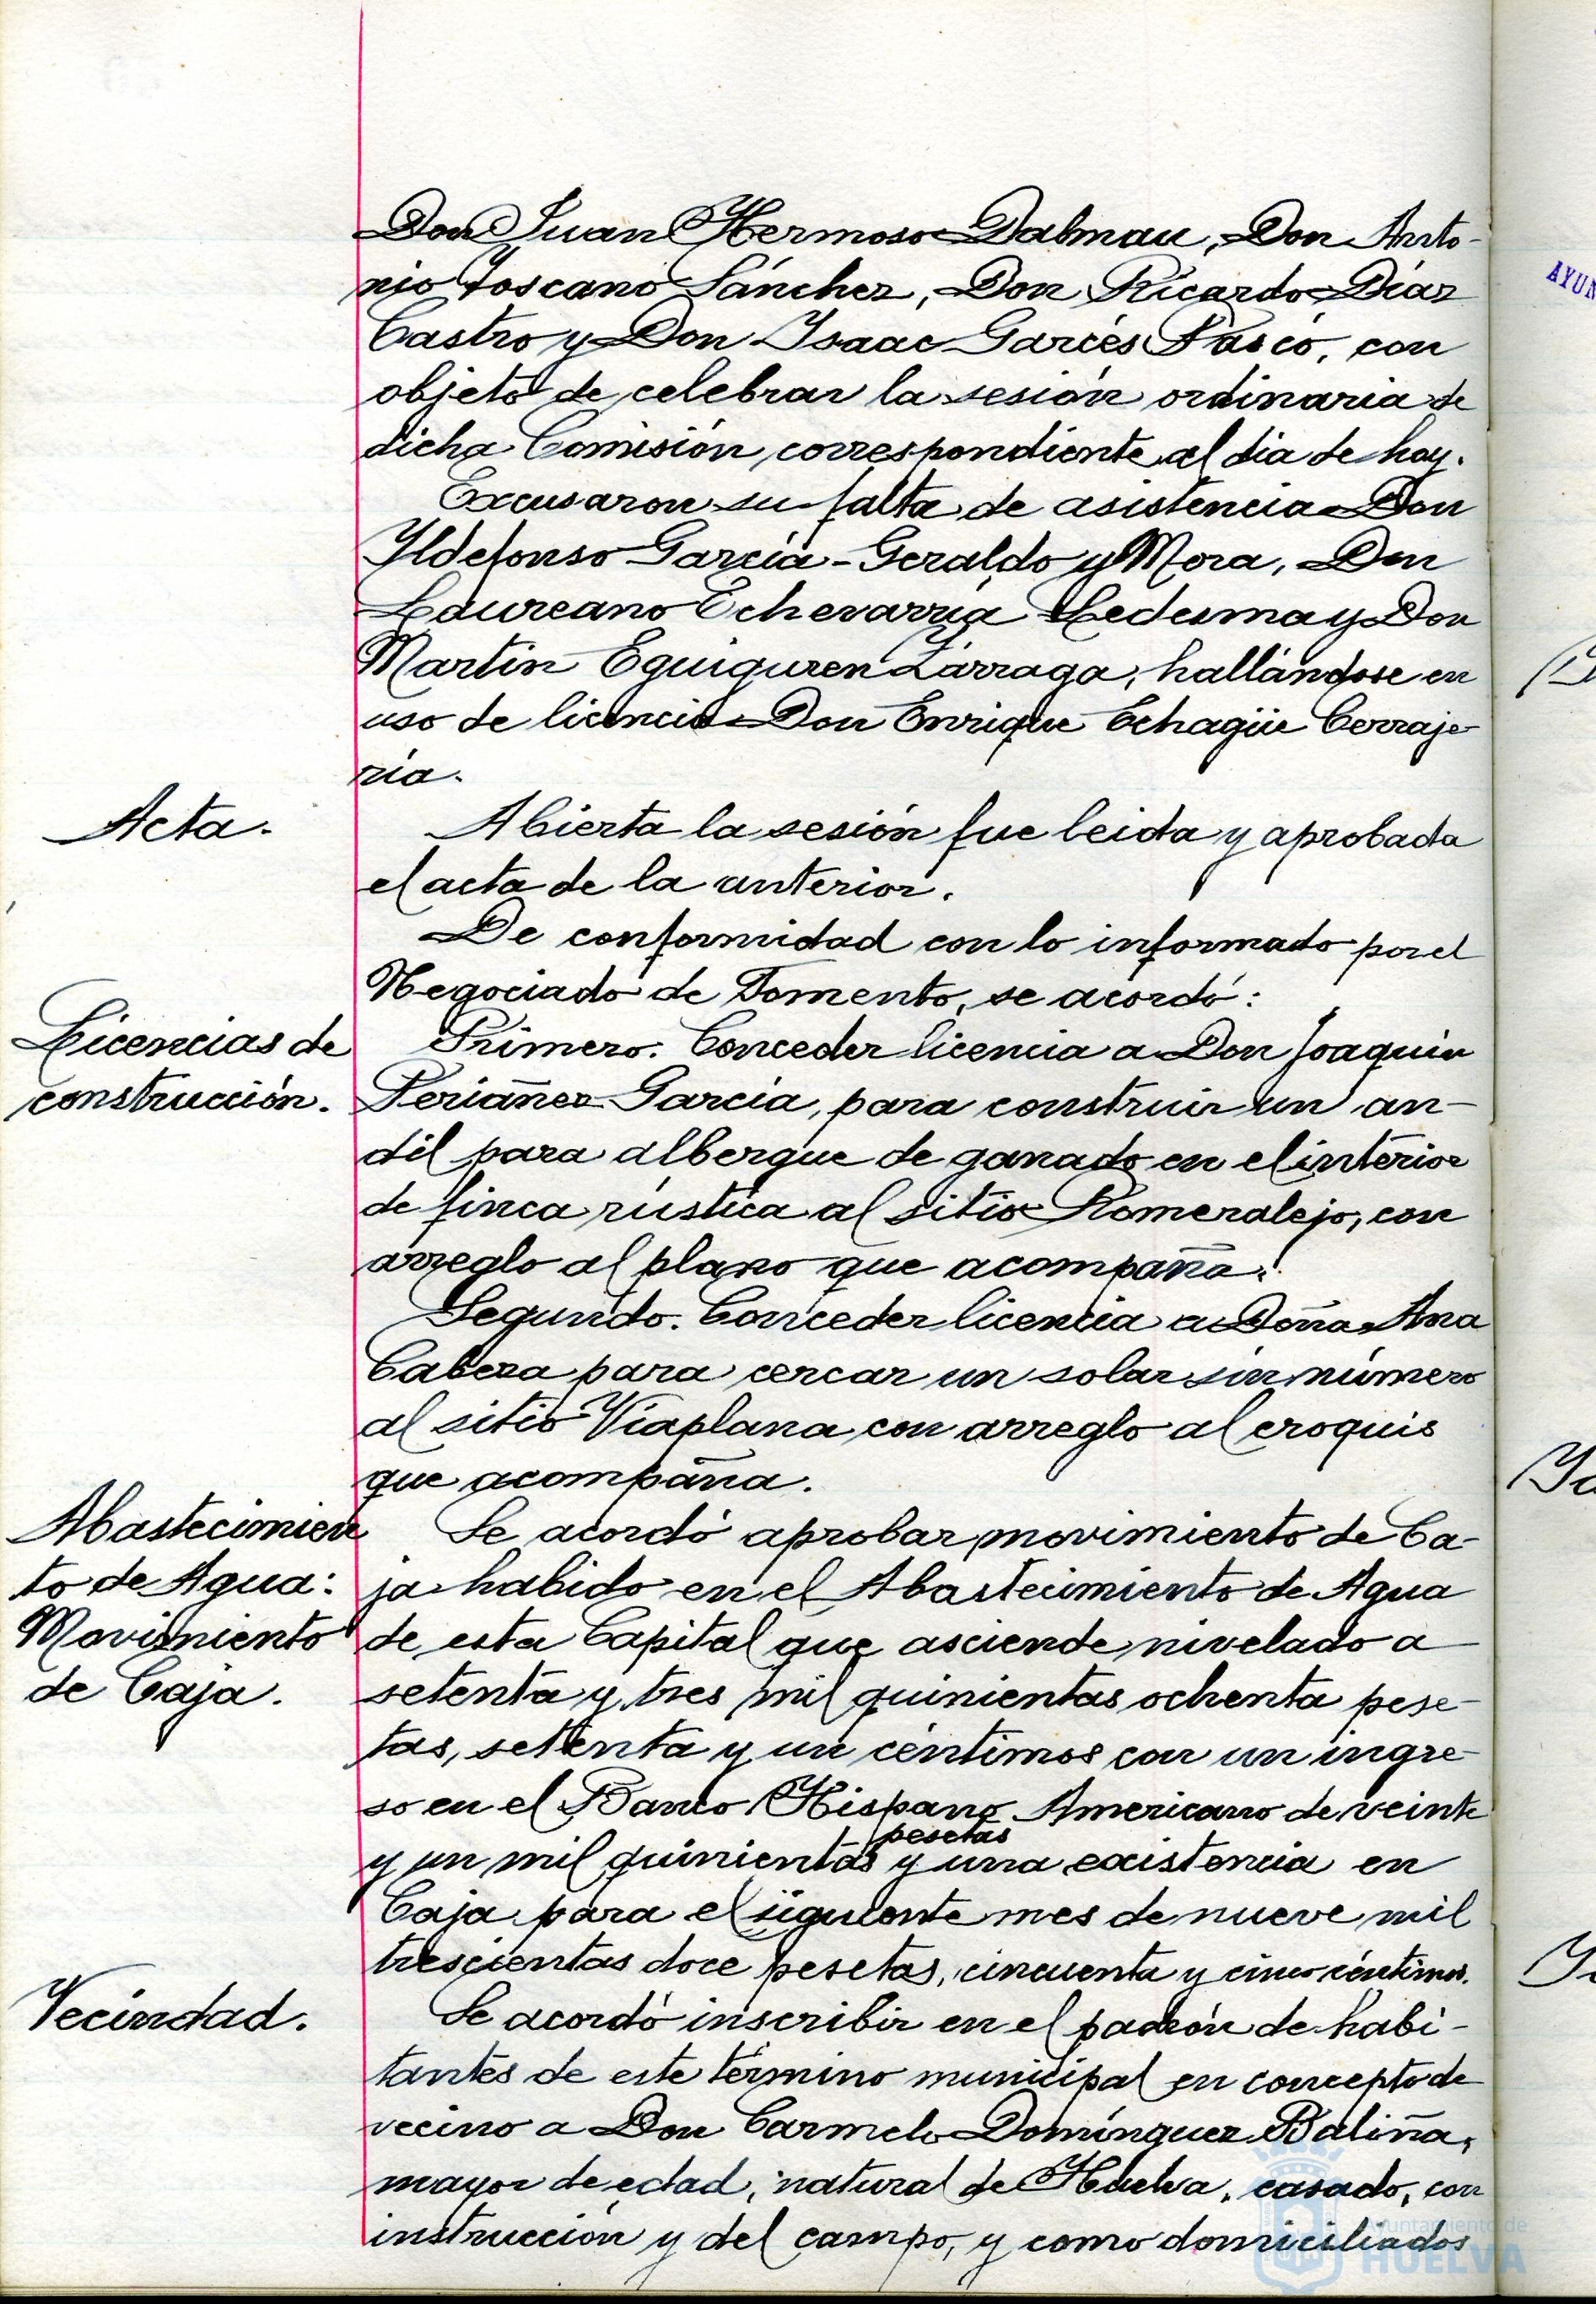 Don Juan Hermoso Dalmau, Don Anto-
nio Toscano Sánchez, Don Ricardo Díaz
Castro y Don Isaac Garcés Pascó, con
objeto de celebrar la sesión ordinaria de
dicha Comisión, correspondiente al dia de hoy.
Excusaron su falta de asistencia Don
Yldefonso García-Geraldo y Mora, Don
Laureano Echevarría Ledesma y Don
Martín Eguiguren Zárraga, hallándose en
uso de licencia Don Enrique Echagüe Cerraje-
ría.
Acta.
Abierta la sesión fue leida y aprobada
el acta de la anterior.
De conformidad con lo informado por el
Negociado de Fomento, se acordó:
Licencias de
construcción.
Primero. Conceder licencia a Don Joaquin
Periáñez García, para construir un an-
dil para albergue de ganado en el interior
de finca rústica al sitio Romeralejo, con
arreglo al plano que acompaña.
Segundo. Conceder licencia a Doña Ana
Cabeza para cercar un solar sin número
al sitio Viaplana con arreglo al croquis
que acompaña.
Abastecimien
to de Agua:
Movimiento
de Caja.
Se acordó aprobar movimiento de Ca-
ja habido en el Abastecimiento de Agua
de esta Capital que asciende nivelado a
setenta y tres mil quinientas ochenta pese-
tas, setenta y un céntimos con un ingre-
so en el Banco Hispano Americano de veinte
y un mil quinientas pesetas y una existencia en
Caja para el siguiente mes de nueve mil
trescientas doce pesetas, cincuenta y cinco céntimos.
Vecindad.
Se acordó inscribir en el padrón de habi-
tantes de este término municipal en concepto de
vecino a Don Carmelo Domínguez Baliña,
mayor de edad, natural de Huelva, casado, con
instrucción y del campo, y como domiciliados
Ayuntamiento de
HUELVA
AYUN